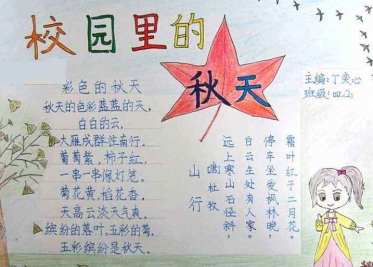 校园里的
秋天
主编:丁奕心
班级:四.2
彩色的秋天
秋天的色彩蓝蓝的天,
白白的云,
大雁成群往南行。
葡萄紫,柿子红,
一串一串像灯笼。
菊花黄,稻花香,
天高云淡天气爽,
缤纷的落叶,五彩的菊,
五彩缤纷是秋天。
山行
杜牧
远上寒山石径斜,
白云生处有人家。
停车坐爱枫林晚,
霜叶红于二月花。